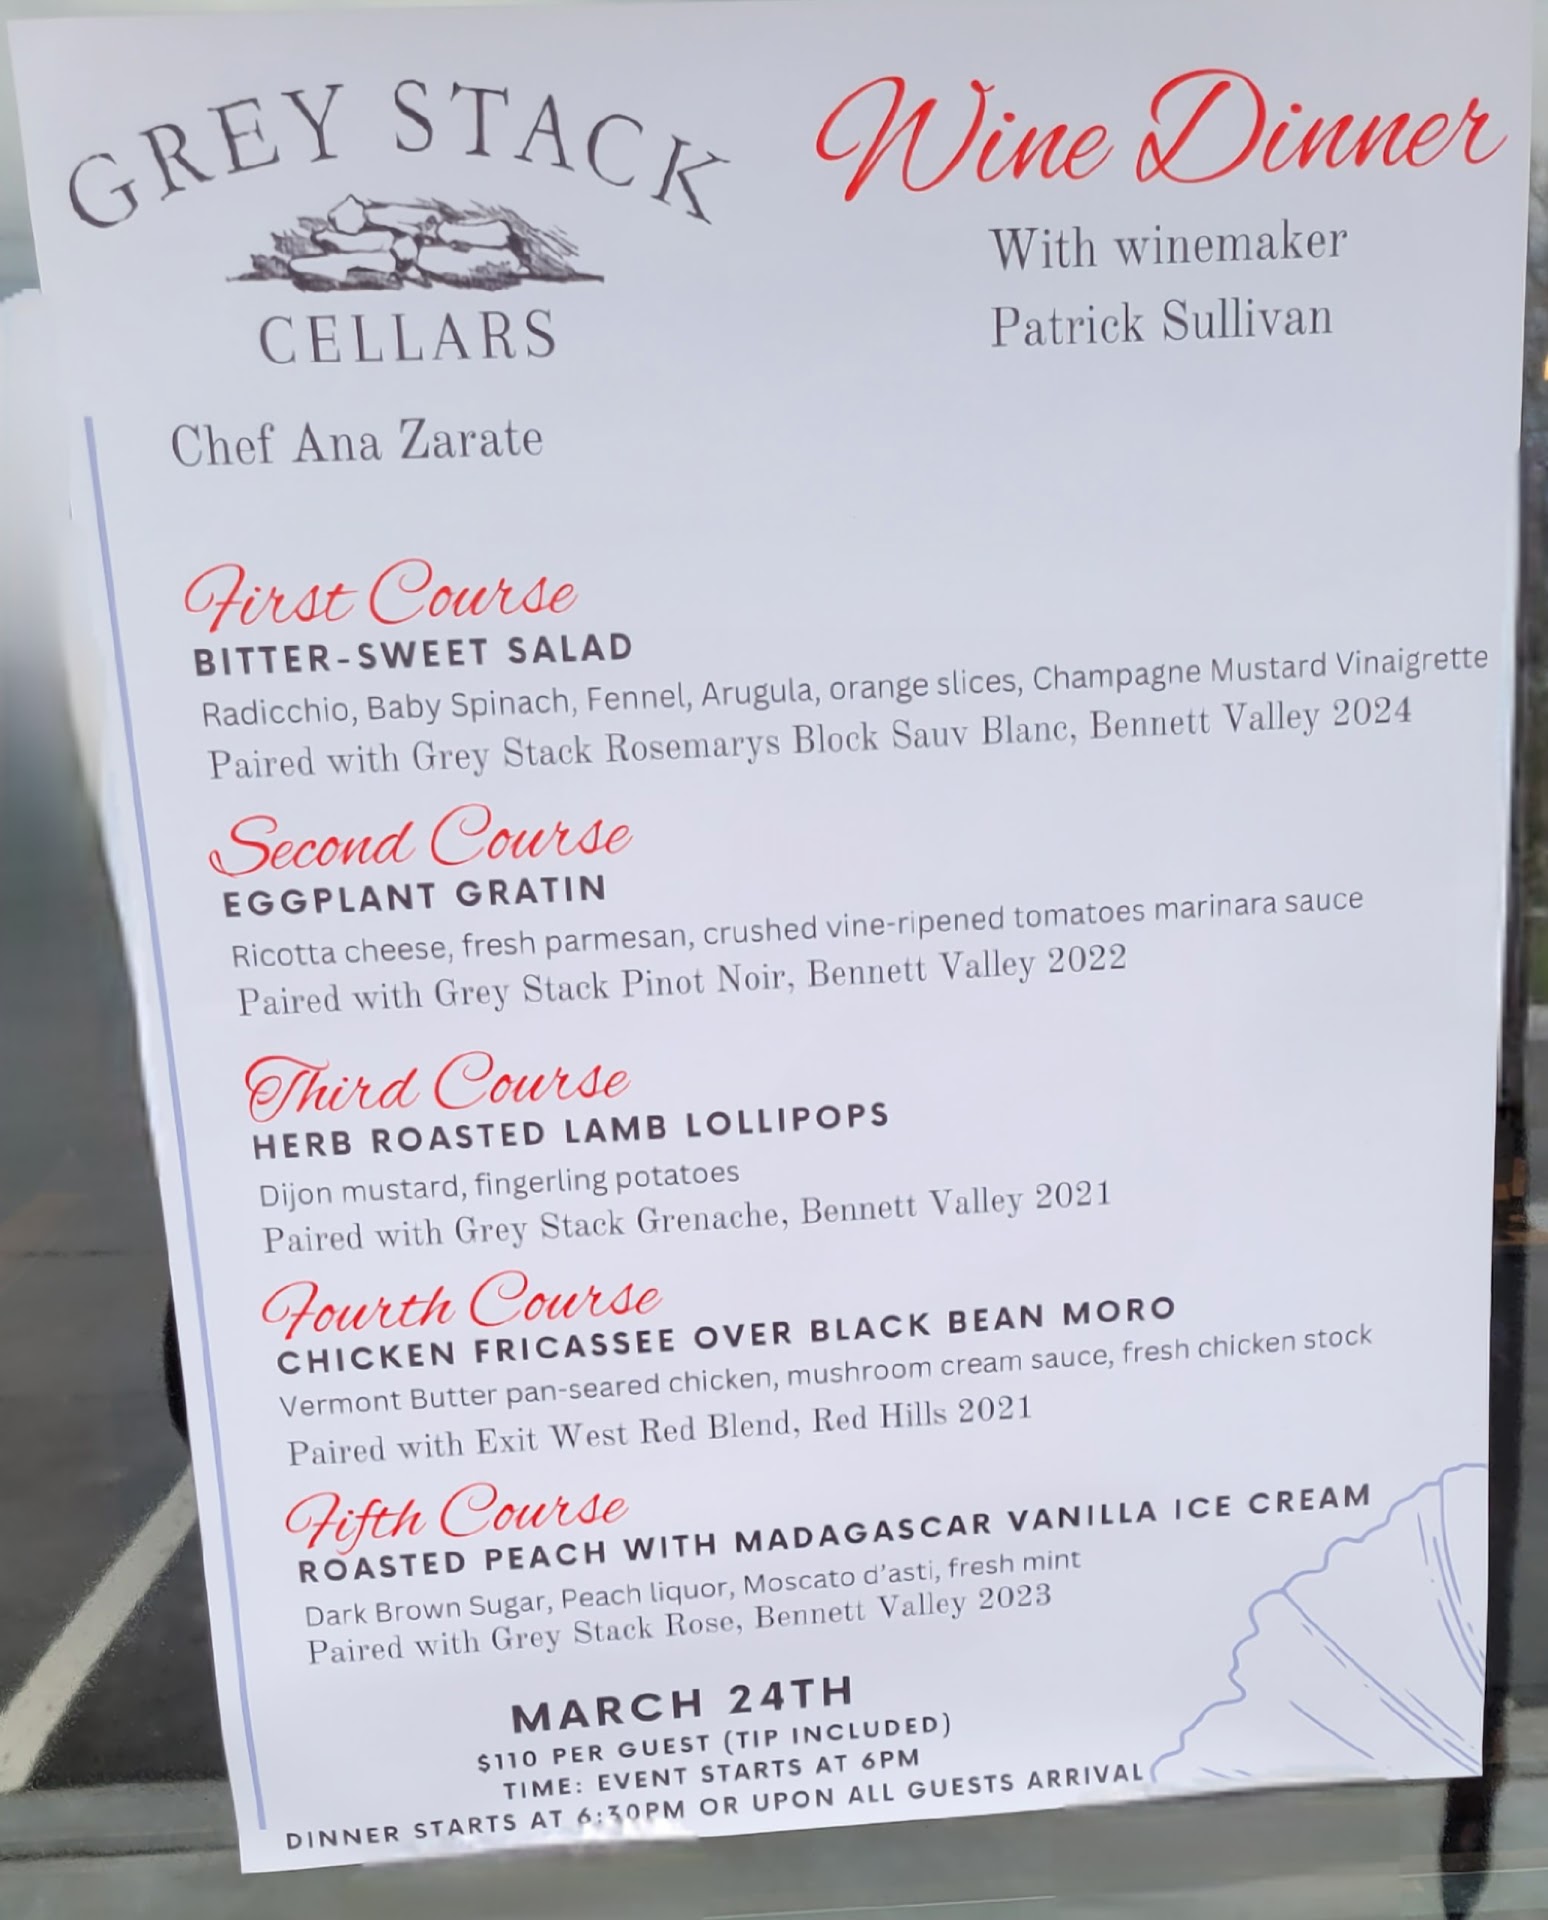 GREY STACK
CELLARS
Wine Dinner
With winemaker
Patrick Sullivan
Chef Ana Zarate
First Course
BITTER-SWEET SALAD
Radicchio, Baby Spinach, Fennel, Arugula, orange slices, Champagne Mustard Vinaigrette
Paired with Grey Stack Rosemarys Block Sauv Blanc, Bennett Valley 2024
Second Course
EGGPLANT GRATIN
Ricotta cheese, fresh parmesan, crushed vine-ripened tomatoes marinara sauce
Paired with Grey Stack Pinot Noir, Bennett Valley 2022
Third Course
HERB ROASTED LAMB LOLLIPOPS
Dijon mustard, fingerling potatoes
Paired with Grey Stack Grenache, Bennett Valley 2021
Fourth Course
CHICKEN FRICASSEE OVER BLACK BEAN MORO
Vermont Butter pan-seared chicken, mushroom cream sauce, fresh chicken stock
Paired with Exit West Red Blend, Red Hills 2021
Fifth Course
ROASTED PEACH WITH MADAGASCAR VANILLA ICE CREAM
Dark Brown Sugar, Peach liquor, Moscato d'asti, fresh mint
Paired with Grey Stack Rose, Bennett Valley 2023
MARCH 24TH
$110 PER GUEST (TIP INCLUDED)
TIME: EVENT STARTS AT 6PM
DINNER STARTS AT 6:30PM OR UPON ALL GUESTS ARRIVAL